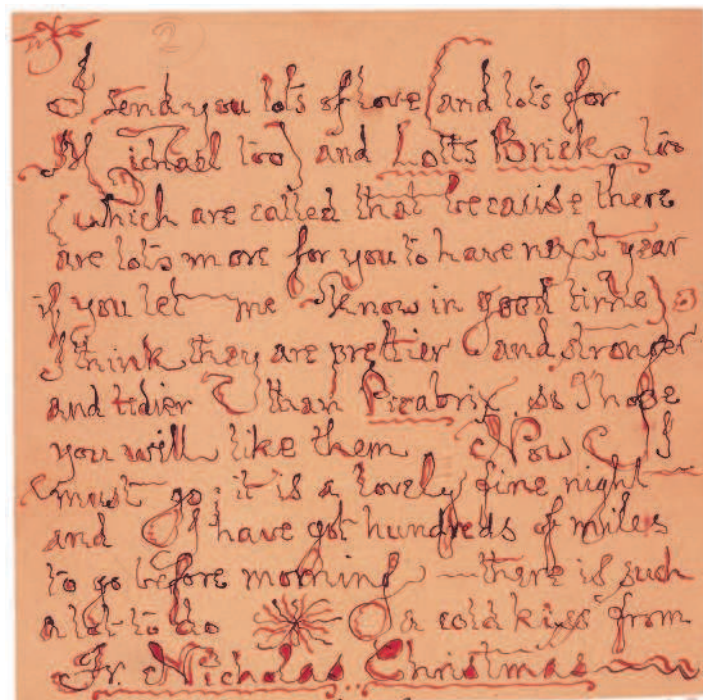 2
I send you lots of love (and lots for
Michael too) and Lotts Bricks too
(which are called that because there
are lots more for you to have next year
if you let me know in good time).
I think they are prettier and stronger
and tidier than Picabrix. So I hope
you will like them. Now I
must go: it is a lovely fine night
and I have got hundreds of miles
to go before morning — there is such
a lot to do.   a cold kiss from
Fr. Nicholas Christmas